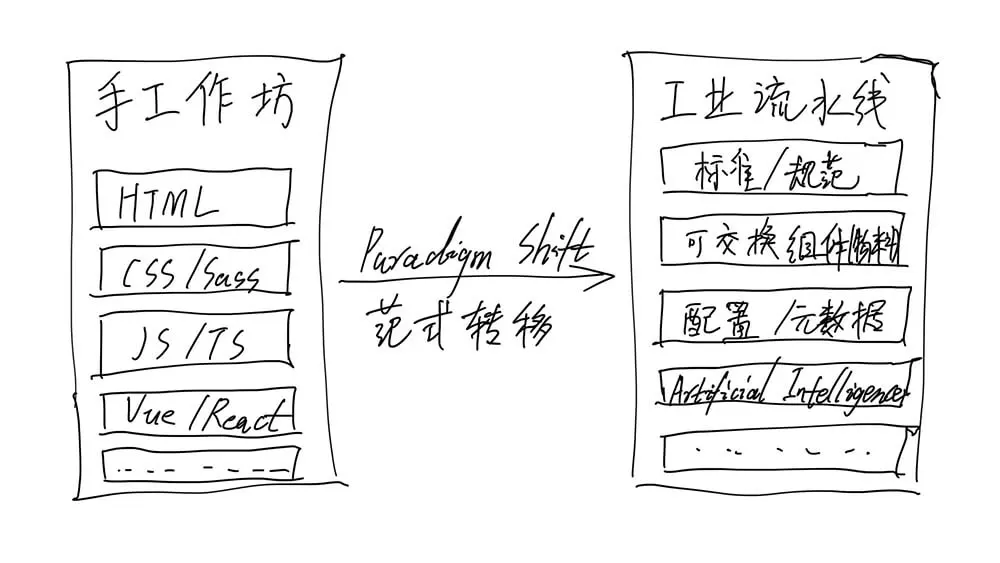 手工作坊
HTML
CSS/Sass
JS/TS
Vue/React
Paradigm Shift
范式转移
工业流水线
标准/规范
可交换组件/物料
配置/元数据
Artificial Intelligence